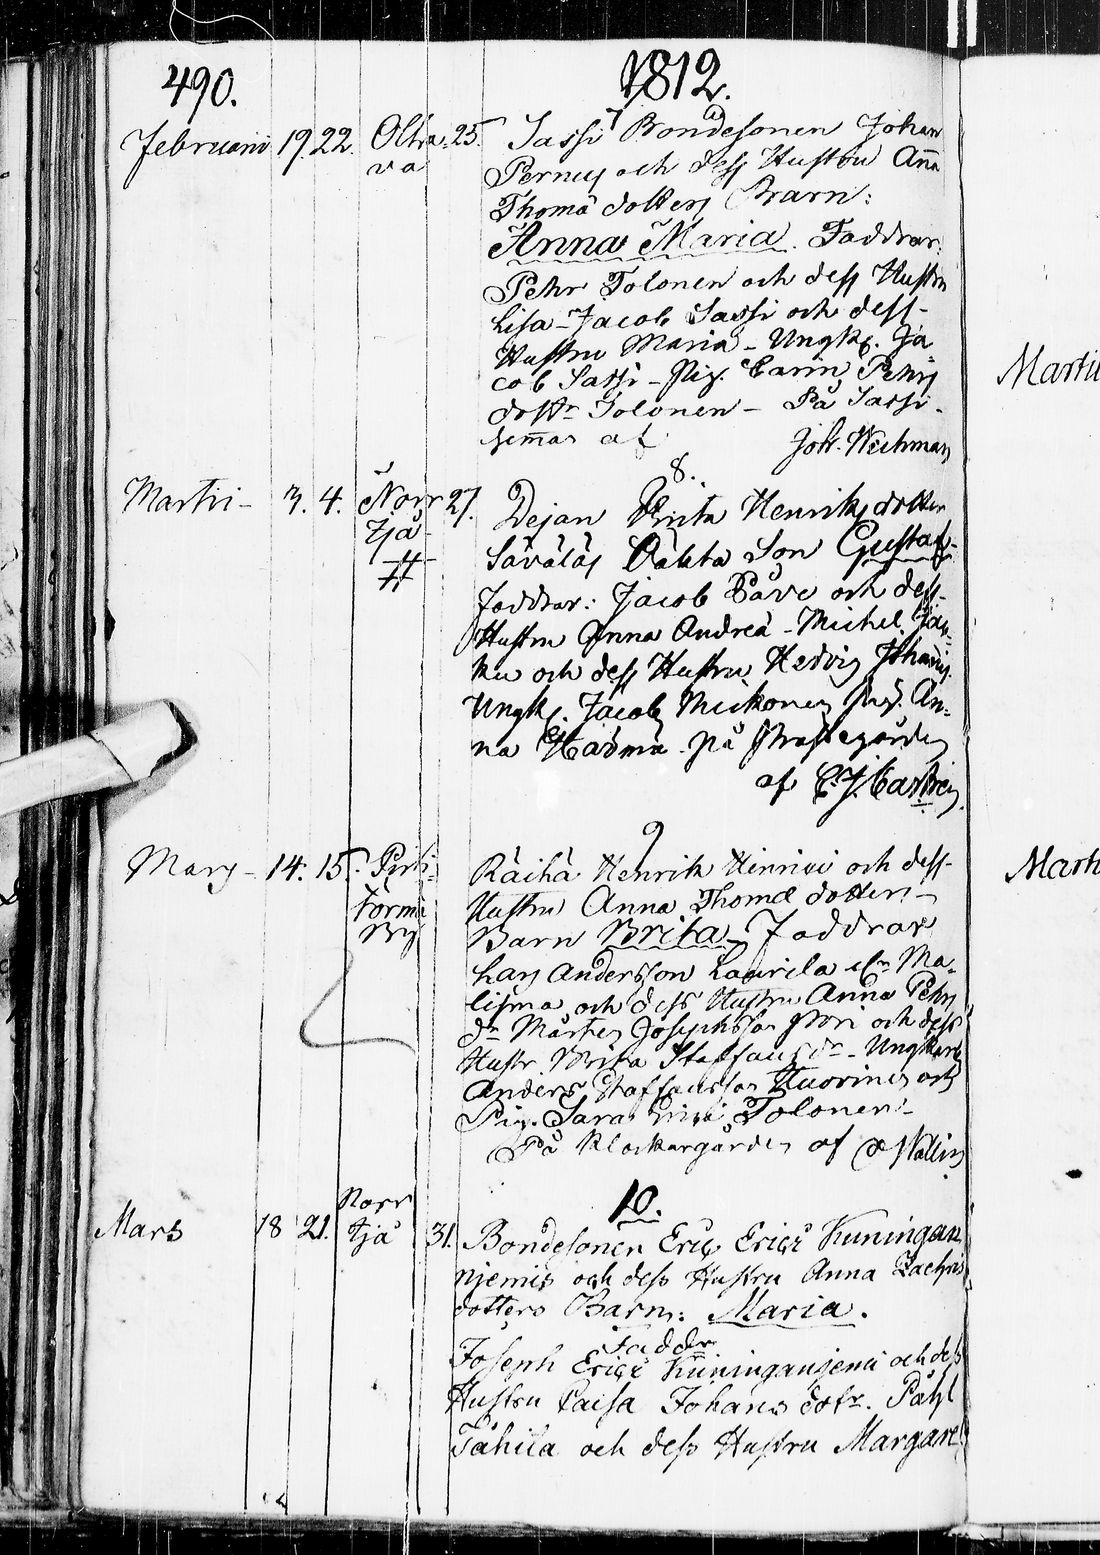 490. 1812.
7
Februarii 19. 22. Oltava 25. Sassi Bondesonen Johan
Pernus och dess Hustru Anna
Thomæ dotters Barn:
Anna Maria. Faddrar:
Pehr Tolonen och dess Hustru
Lisa – Jacob Sassi och dess
Hustru Maria – Ungk. Ja
cob Sassi – Pig. Carin Pehrs
dottr Tolonen – På Sassi
hemman af Joh. Wichman
8.
Martii – 3. 4. Norr Tjå # 27. Dejan Brita Henriks dotter
Säväläs Oäkta Son Gustaf
Faddrar: Jacob Påve och dess
Hustru Anna Andreæ – Michel
och dess Hustru Hedvig Johans
Ungk. Jacob Mickonen Pig. An-
na på Prästegården
af C. J. Castrén
9
Mars – 14. 15. By Räihä Henrik Hinrici och dess
Hustru Anna Thomæ dotters
Barn Brita – Faddrar
Lars Andersson Laurila Ma-
och dess Hustru Anna Pehrs
dr Mårten Josephsson och dess
Hustr. Brita Staffansdr – Ungkarl
Anders Staffansson Huovinen och
Pig. Sara Tolonen –
På Klockargården af Wallin
10.
Mars 18 21. Norr Tjå 31. Bondesonen Eric Erici Kuningan
njemis och dess Hustru Anna Zachris
dotters Barn: Maria.
Fadder
Joseph Erici Kuninganjemi och dess
Hustru Caisa Johans dotr. Påhl
Tähilä och dess Hustru Margaret
Martii
Marti